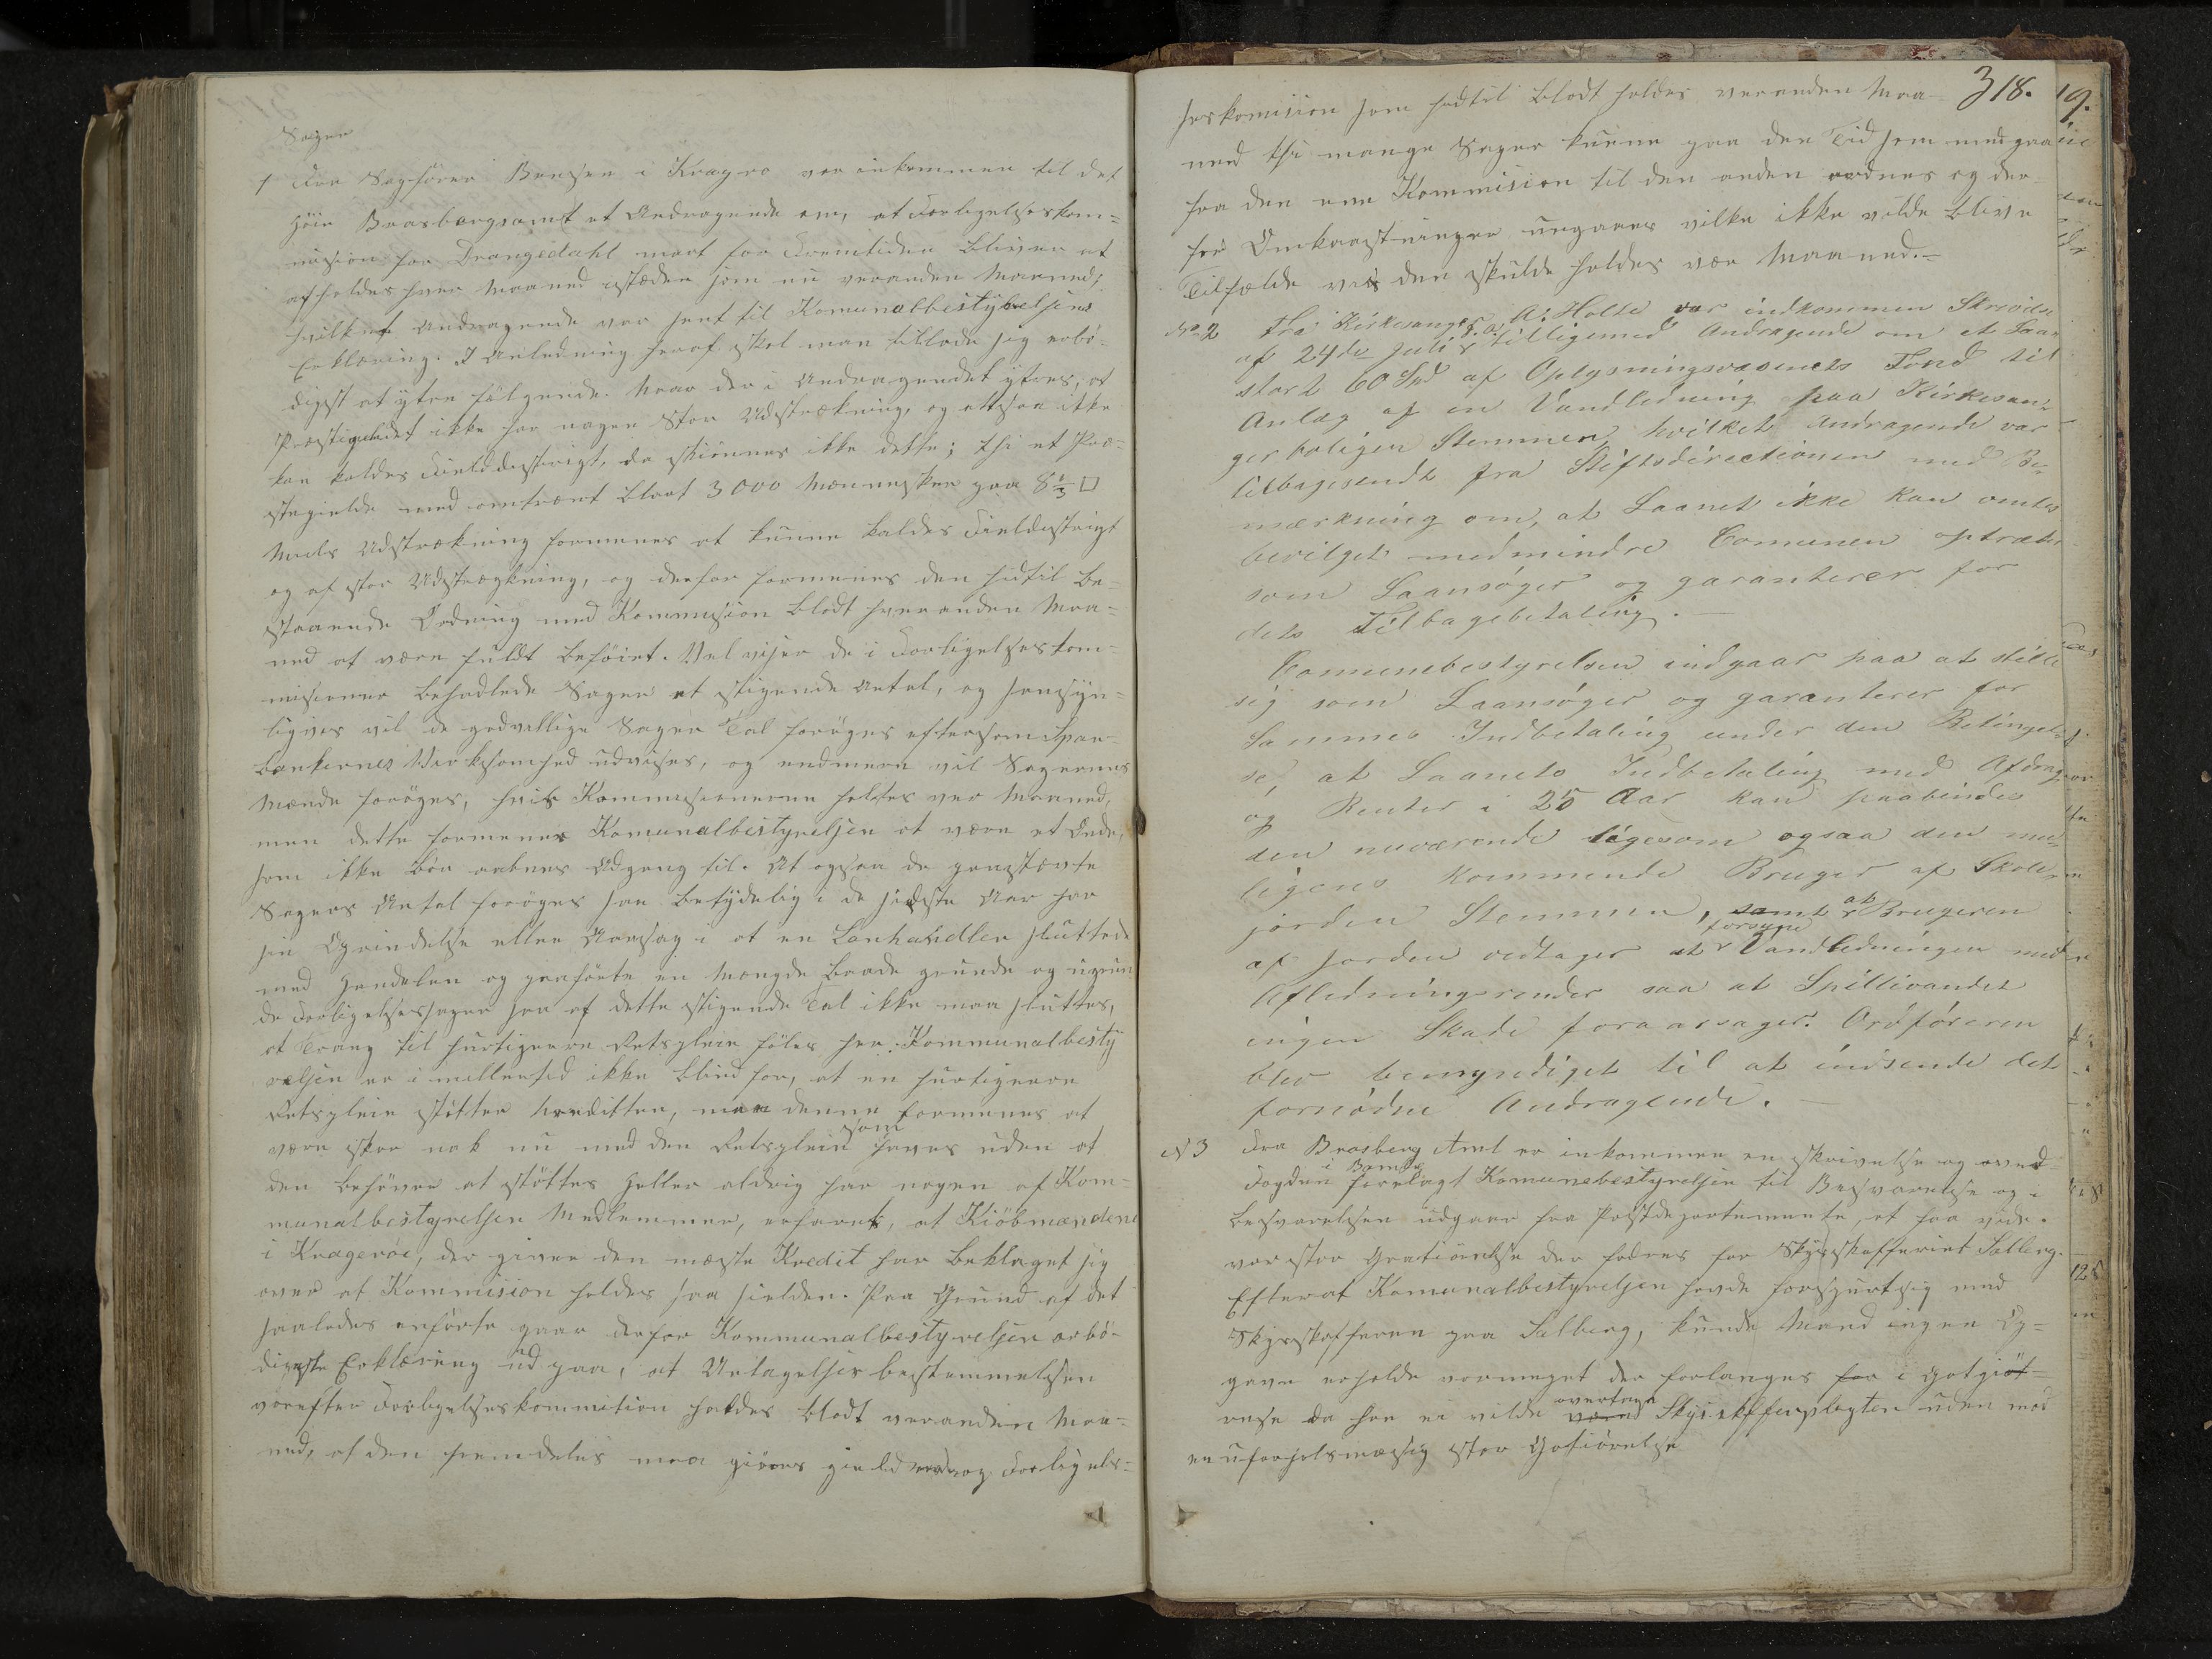 Sager
1 Fra Sagfører Bensen i Kragerø var inkommen til det
høie Brasbergamt et Andragende om, at Forligelseskom=
mision for Drangedahl maat for Fremtiden bliver at
afholdes hver Maaned isteden som nu veranden Maaned;
hvilket Andragende var sent til Komunalbestyrelsens
Erklæring. I Anledning heraf skal man tillade sig ærbø=
digst at ytre følgende. Naar der i Andragendet ytres, at
Præstegieldet ikke har nogen stor Udstrækning, og altsaa ikke
kan kaldes Fielddistrigt, da skiønnes ikke dette; thi et Præ=
stegield med omtrent blant 3000 Mennesker paa 8⅓ □
Miils Udstrækning formenes at kunne kaldes Fieldistrigt
og af stor Udstrægkning, og derfor formenes den hidtil be=
staaende Ordning med Kommision blodt hveranden Maa=
ned at være fuldt beføiet. Vel viser de i Forligelseskom=
misioner behadlede Sager et stigende Antal, og sansyn=
ligvis vil de godvillige Sagers Tal forøges eftersom Spar=
bankernes Virksomhed udvises, og endmere vil Sagernes
Mænde forøges, hvis Kommisionerne holdes ver Maaned,
men dette formener Komunalbestyrelsen at være et Onde,
som ikke bør aabnes Adgang til. At ogsaa de genstævte
Sagers Antal forøges saa betydelig i de sidste Aar har
sin Oprindelse eller Aarsag i at en Lanhandler sluttede
med Handelen og paaførte en Mængde baade grunde og ugrun
de Forligelsessager saa af dette stigende Tal ikke maa sluttes,
at Trang til hurtigere Retspleie føles her. Kommunalbesty
relsen er i mellertid ikke blind for, at en hurtigere
Retspleie støtter kreditten, men denne formenes at
være skar nok nu med den Retspleie som haves uden at
den behøver at støttes heller aldrig har nogen af Kom=
munalbestyrelsen Medlemmer, erfaret, at Kiøbmændene
i Kragerøe, der giver den mæste Kredit har beklaget sig
over at Kommision holdes saa sielden. Paa Grund af det
saaledes anførte gaar derfor Kommunalbestyrelsen ærbø=
digste Erklæring ud paa, at Antagelses bestemmelsen
vorefter Forligelseskommition holdes blodt veranden Maa=
ned, at den fremdeles maa giøres gield og Forligels=
318.
seskomision som hidtil blodt holdes veranden Maa
ned thi mange Sager kunne paa den Tid som medgaar
fra den ene Kommision til den anden ordnes og der=
for Omkaastninger ungaaes vilke ikke vilde blive
Tilfælde vis den skulde holdes vær Maaned.=
No 2 Fra Kirkesanger A. Holte var indkommen Skrivelse
af 24de Juli d. a. tilligemed Andragende om et Laan
stort 60 Spd af Oplysningsvæsenets Fond til
Anlæg af en Vandledning paa Kirkesan=
gerboligen Stemmen, hvilket Andragende var
tilbagesendt fra Stiftsdirectionen med Be=
mærkning om, at Laanet ikke kan ventes
bevilget medmindre Comunen optræder
som Laansøger og garanterer for
dets Tilbagebetaling.—
Comunebestyrelsen indgaar paa at stille
sig som Laansøger og garanterer for
Sammes Indbetaling under den Betingel=
se, at Laanets Indbetaling med Afdrag
og Renter i 25 Aar kan paabindes
den nuværende ligesom ogsaa den mu=
ligens kommende Bruger af Skole=
jorden Stemmen, samt at Brugeren
af Jorden vedtager at forsyne Vandledningen med
Afledningsrender saa at Spillivandet
ingen Skade foraarsager. Ordføreren
blev bemyndiget til at indsende det
fornødne Andragende.—
N 3 Fra Brasberg Amt er inkommen en skrivelse og ved
Fogden i Bamble forelagt Komunebestyrelsen til Besvarelse og i
besvarelsen udgaar fra Postdepartemente, at faa vide.
vor stor Gratiørelse der fodres for Skydsskafferiet Solberg.
Efterat Komunalbestyrelsen havde forspurt sig med
Skydsskafferen paa Solberg, kunde Mand ingen Op=
gave erholde vormeget der forlanges for i Gotgiør=
else da han ei vilde overtage Skysskafferplegten uden mod
en uforholsmæsig stor Gotiørelse